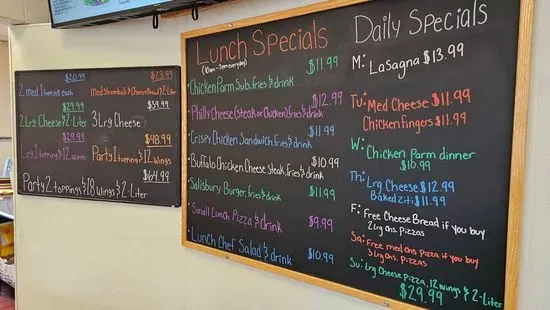 $20.99 $23.99
2 med. 1 topping each med stromboli & Cheese Bread & 2-Liter
$29.99 $39.99
2 Lrg Cheese & 2-Liter 3 Lrg Cheese
$29.99 $48.99
Lrg 1 topping & 12 wings Party 1 topping & 12 wings
$64.99
Party 2 toppings & 18 wings & 2-Liter
Lunch Specials
(10am-3pm everyday)
$11.99
Chicken Parm Sub, fries & drink
$12.99
Philly Cheese (Steak or Chicken), fries & drink
$11.99
Crispy Chicken Sandwich, fries & drink
$10.99
Buffalo Chicken Cheese Steak, fries & drink
$11.99
Salisbury Burger, fries & drink
$9.99
Small Lunch Pizza & drink
$10.99
Lunch Chef Salad & drink
Daily Specials
M:
Lasagna $13.99
Tu: Med Cheese $11.99
Chicken fingers $11.99
W:
Chicken Parm dinner
$10.99
Th: Lrg Cheese $12.99
Baked ziti $11.99
F: Free Cheese Bread if you buy
2 Lrg ons. pizzas
Sa: Free med ons pizza if you buy
3 Lrg ons. pizzas
Su: Lrg Cheese pizza, 12 wings & 2-Liter
$29.99